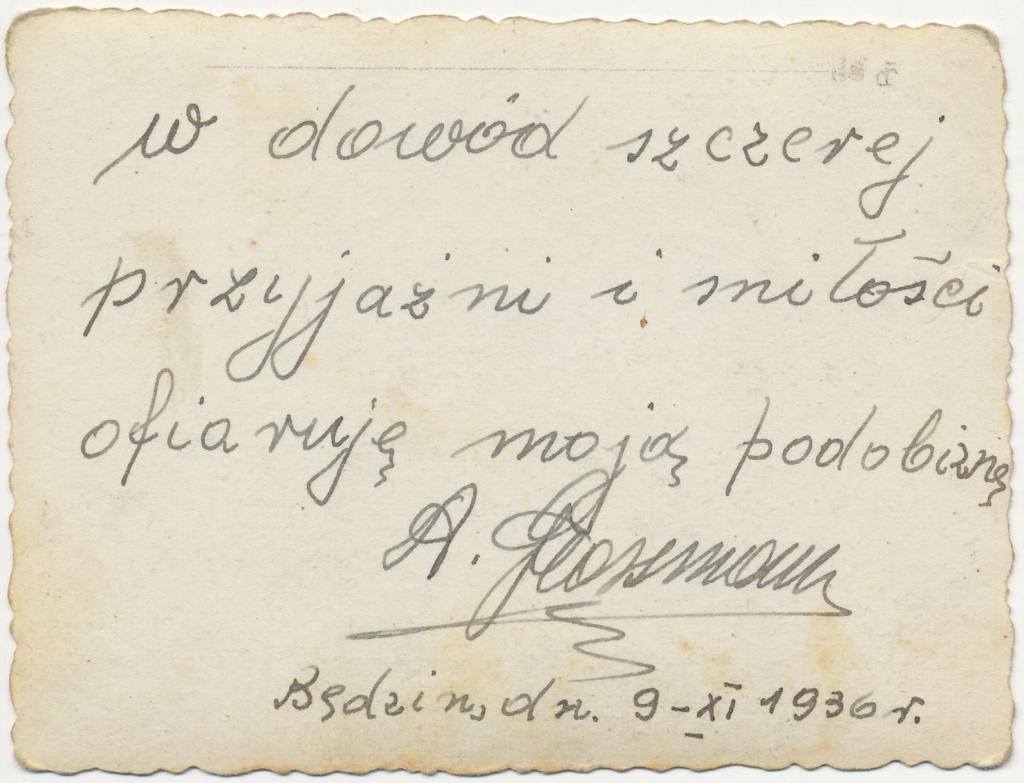 w dowód szczerej
przyjaźni i miłości
ofiaruję moją podobiznę
A.
Będzin, dn. 9-XI 1936 r.